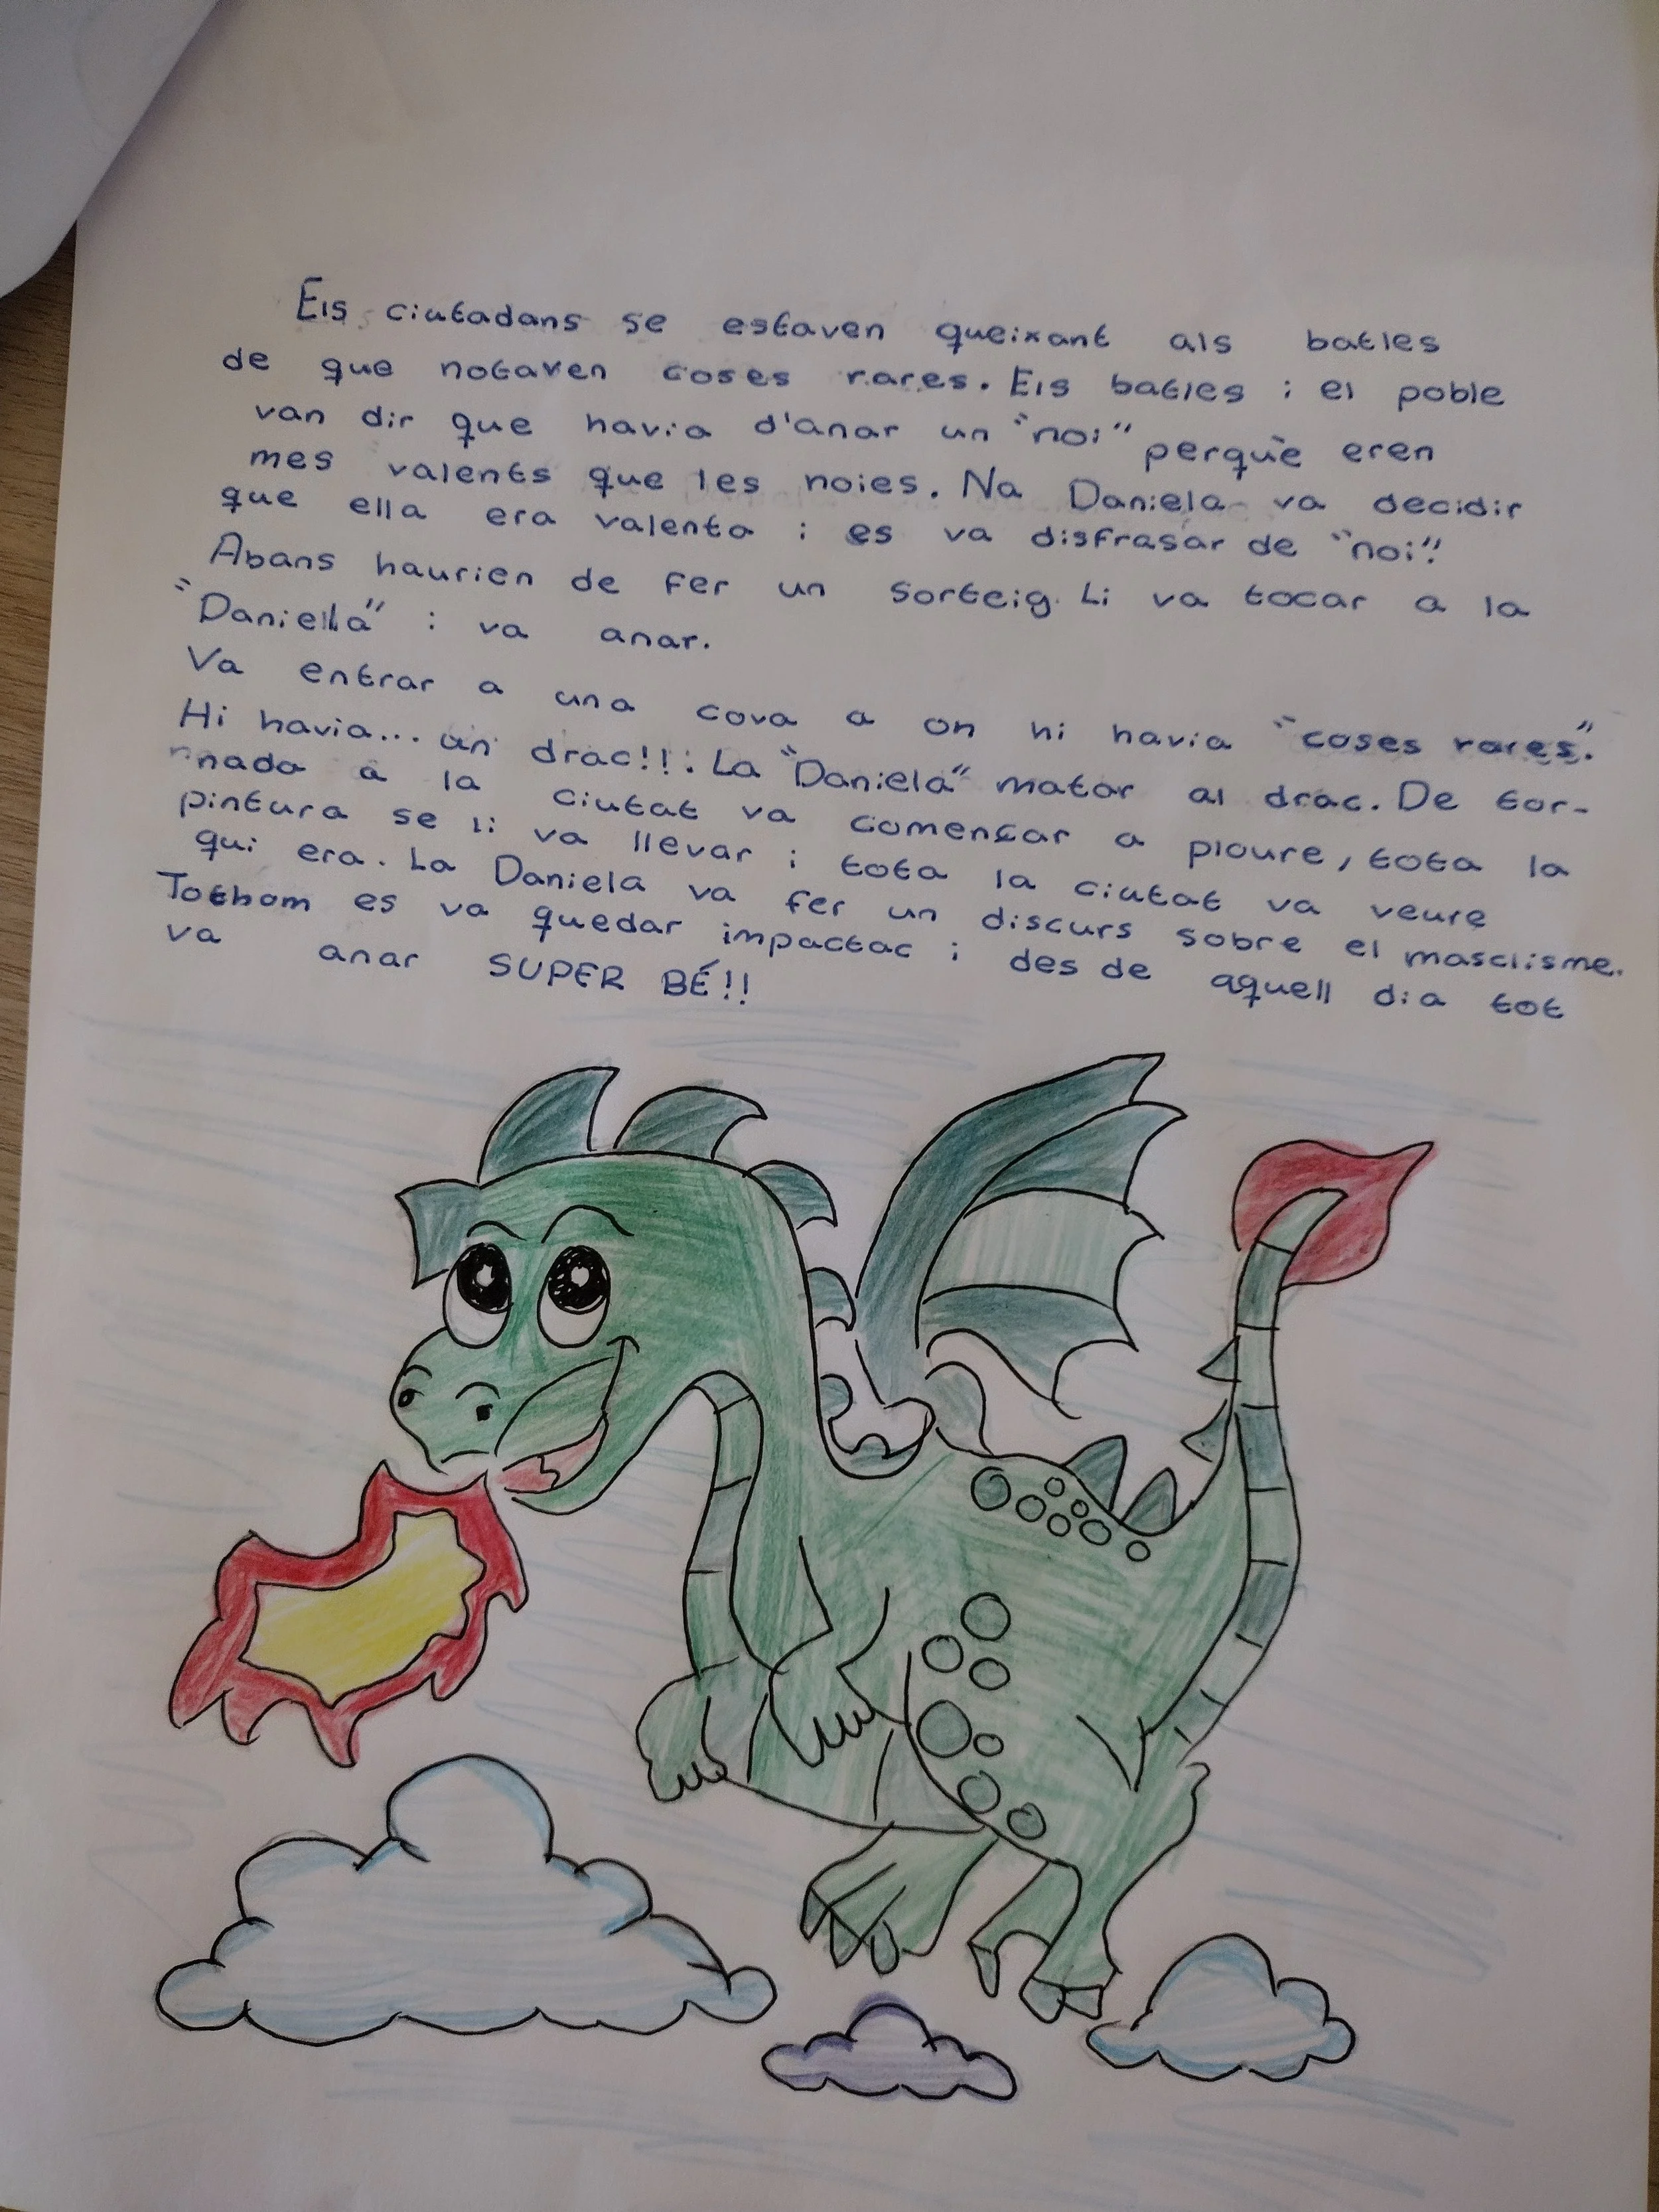 Els ciutadans se estaven queixant als batles
de que notaven coses rares. Els batles i el poble
van dir que havia d'anar un "noi" perquè eren
mes valents que les noies. Na Daniela va decidir
que ella era valenta i es va disfrasar de "noi".
Abans haurien de fer un sorteig. Li va tocar a la
"Daniella" i va anar.
Va entrar a una cova a on hi havia "coses rares".
Hi havia... un drac!!! La "Daniela" matar al drac. De tor-
nada a la ciutat va començar a ploure, tota la
pintura se li va llevar i tota la ciutat va veure
qui era. La Daniela va fer un discurs sobre el masclisme.
Tothom es va quedar impactac i des de aquell dia tot
va anar SUPER BÉ!!